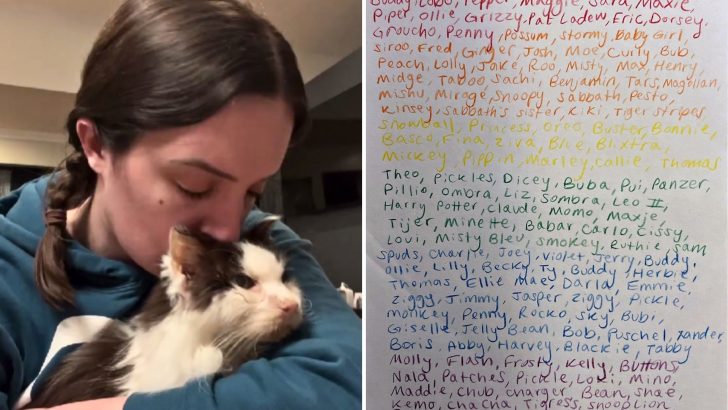 Buddy, Lobo, Pepper, Maggie, Sara, Maxie,
Piper, Ollie, Grizzy, Pat Ladew, Eric, Dorsey,
Groucho, Penny, Possum, Stormy, Baby Girl,
Siroo, Fred, Ginger, Josh, Moe, Curly Bub,
Peach, Lolly, Jake, Roo, Misty, Max, Henry,
Midge, Taboo, Sachi, Benjamin, Tars, Magellan,
Mishu, Mirage, Snoopy, Sabbath, Pesto,
Kinsey, Sabbath's sister, Kiki, Tiger stripes,
Snowball, Princess, Oreo, Buster, Bonnie,
Basco, Fina, Ziva, Blue, Blixtra,
Mickey, Pippin, Marley, Callie, Thomas
Theo, Pickles, Dicey, Buba, Pui, Panzer,
Pillio, Ombra, Liz, Sombra, Leo II,
Harry Potter, Claude, Momo, Maxje,
Tijer, Minette, Babar, Carlo, Cissy,
Lovi, Misty Bleu, Smokey, Ruthie, Sam
Spuds, Charlie, Joey, Violet, Jerry, Buddy,
Ollie, Lilly, Becky, Ty, Buddy, Herbie,
Thomas, Ellie Mae, Darla, Emmie,
Ziggy, Jimmy, Jasper, Ziggy, Pickle,
Monkey, Penny, Rocko, Sky, Bubi,
Giselle, Jelly Bean, Bob, Puschel, Xander,
Boris, Abby, Harvey, Blackie, Tabby
Molly, Flash, Frosty, Kelly, Buttons,
Nala, Patches, Pickle, Loki, Mino,
Maddie, Chub, Charger, Bean, Shae,
Kemo, Cha Cha, Tigress, Snooplion